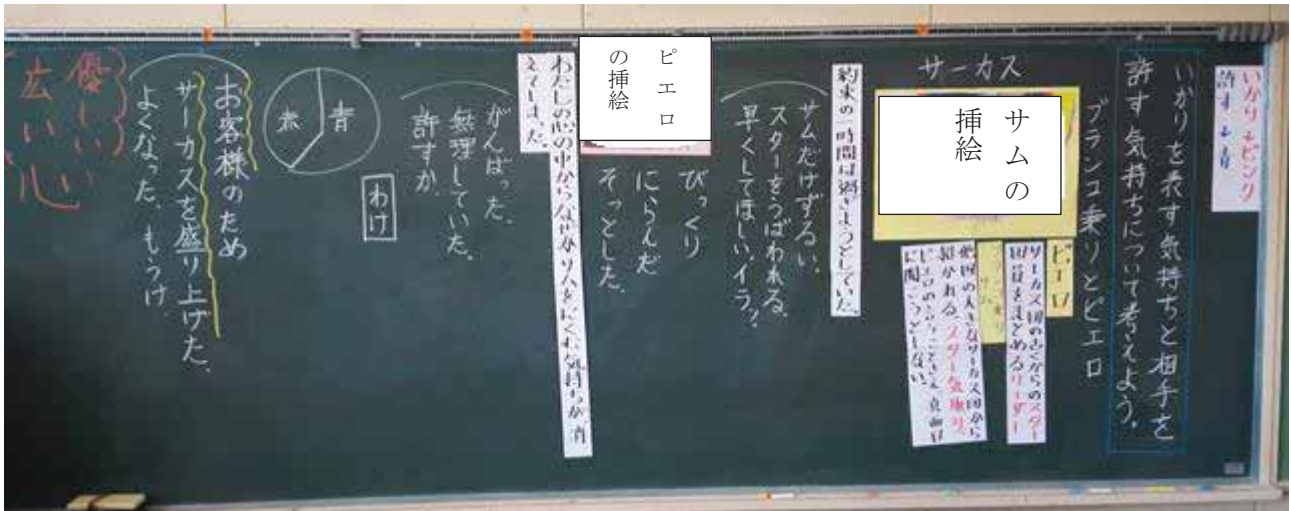 いかり→ピンク
許す→青
いかりを表す気持ちと相手を
許す気持ちについて考えよう。
ブランコ乗りとピエロ
サーカス
サムの
挿絵
ピエロ
サーカス団の古くからのスター
団員をまとめるリーダー
サム
他国の大きなサーカス団から
招かれる。スター気取り。
ピエロの言うことさえ真面目
に聞こうとしない。
約束の一時間は過ぎようとしていた。
サムだけずるい。
スターをうばわれる。
早くしてほしい。イライラ。
ピエロ
の挿絵
びっくり
にらんだ
そっとした。
わたしの心の中からなぜか人をにくむ気持ちが消
えてしまった。
がんばった。
無理していた。
許すか。
わけ
青
赤
お客様のため
サーカスを盛り上げた。
よくなった。もうけ
優しい
広い心